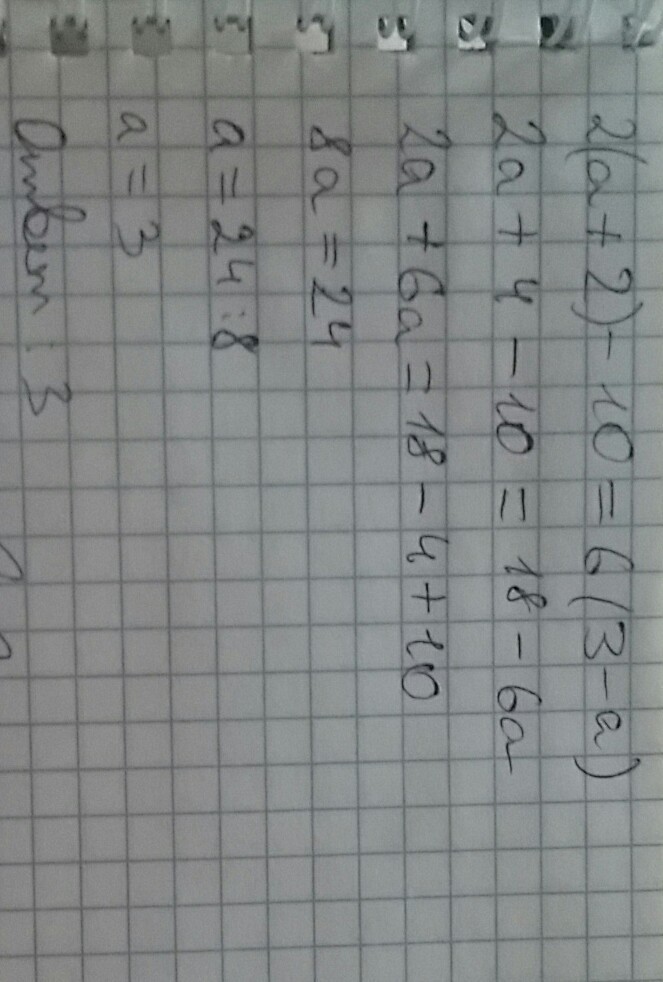 2(a+2)-10=6(3-a)
2a+4-10=18-6a
2a+6a=18-4+10
8a=24
a=24:8
a=3
Ответ: 3